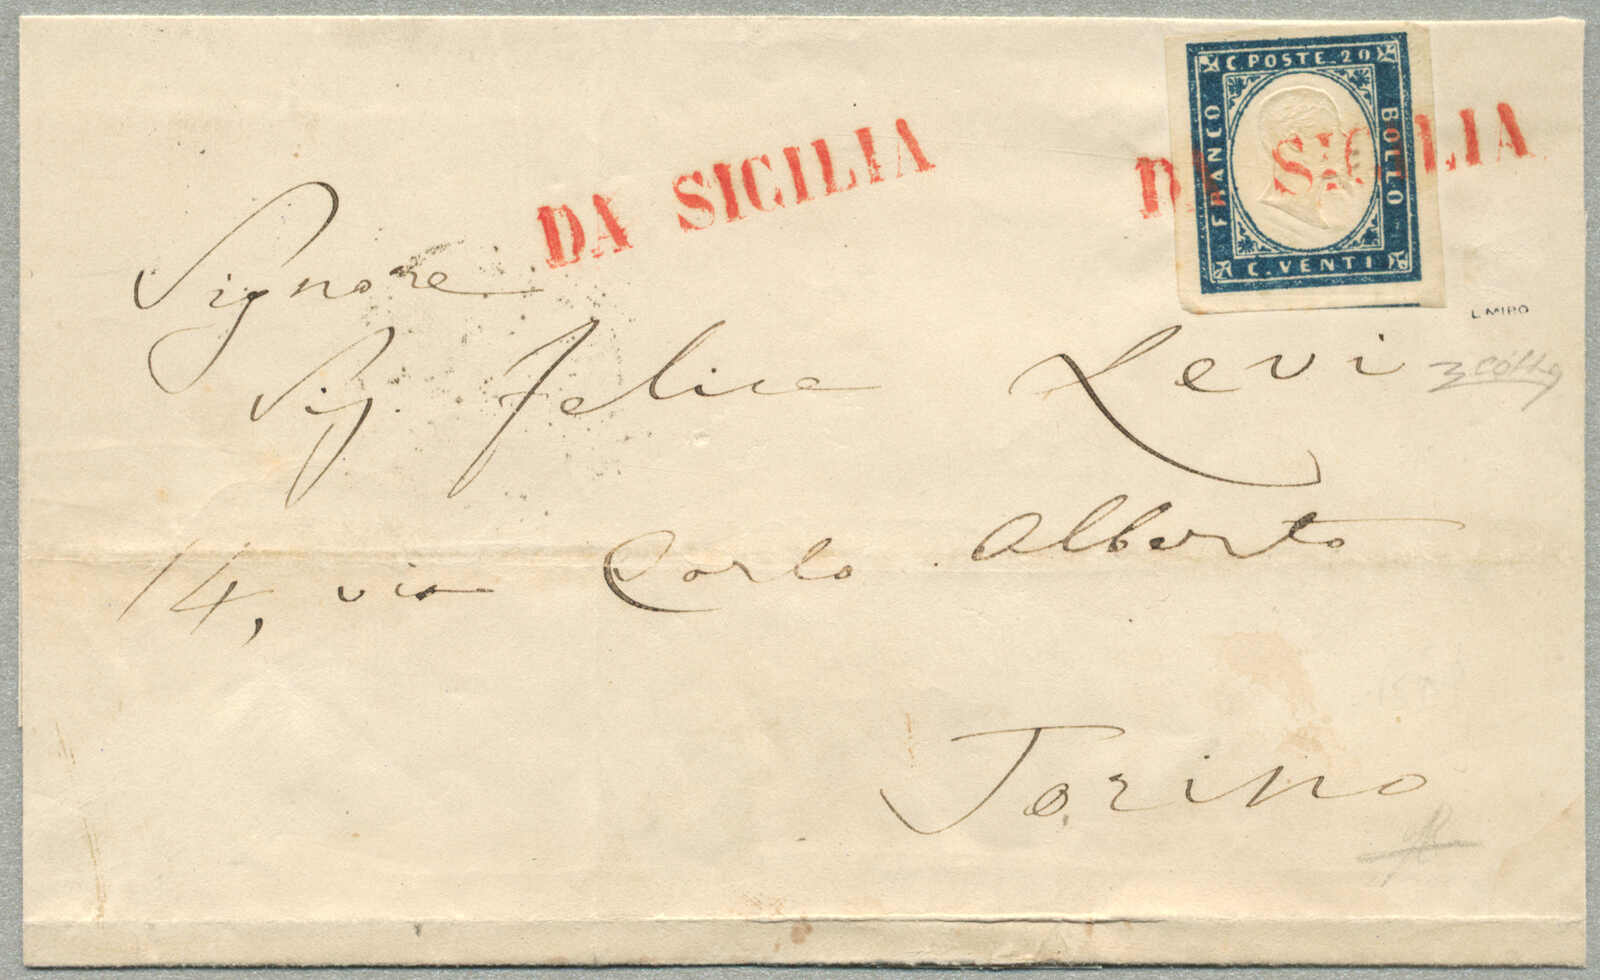 C. POSTE. 20
FRANCO
BOLLO
C. VENTI
DA SICILIA
DA SICILIA
L. MIRO
Signore
Sig. Felice Levi
14, via Carlo Alberto
Torino